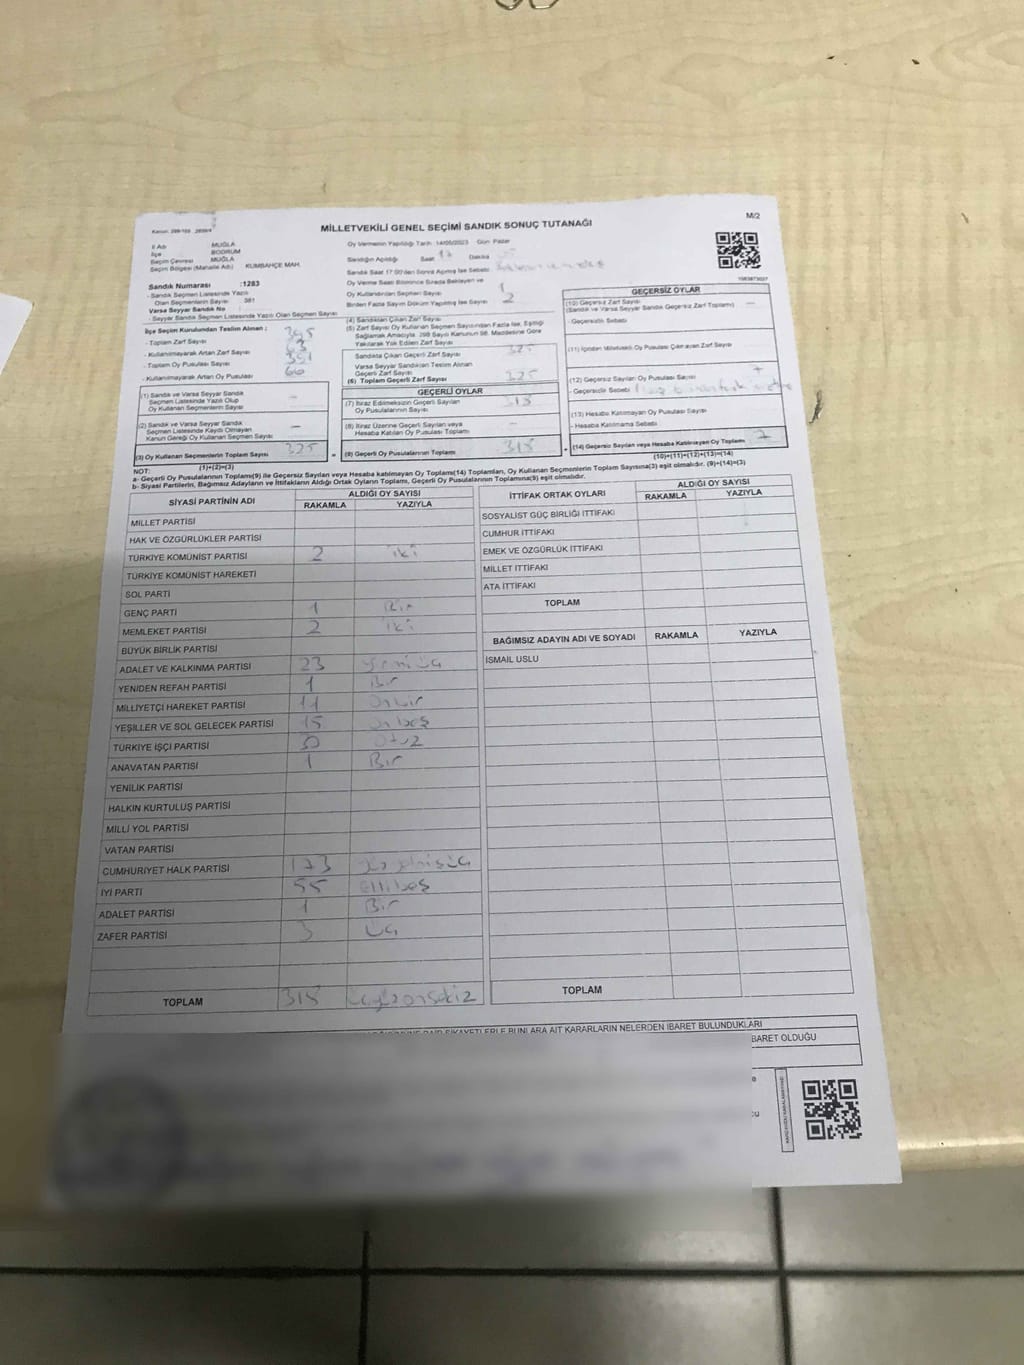 M/2
MİLLETVEKİLİ GENEL SEÇİMİ SANDIK SONUÇ TUTANAĞI
İl Adı MUĞLA
İlçe BODRUM
Seçim Çevresi MUĞLA
Seçim Bölgesi (Mahalle Adı) KUMBAHÇE MAH.
Sandık Numarası :1283
- Sandık Seçmen Listesinde Yazılı
Olan Seçmenlerin Sayısı 381
Varsa Seyyar Sandık No
- Seyyar Sandık Seçmen Listesinde Yazılı Olan Seçmen Sayısı
Oy Vermenin Yapıldığı Tarih :14/05/2023 Gün Pazar
Sandığın Açıldığı Saat 17 Dakika
Sandık Saat 17 00'den Sonra Açılmış İse Sebebi
Oy Verme Saati Bitiminde Sırada Bekleyen ve
Oy Kullandırılan Seçmen Sayısı 1
Birden Fazla Sayım Döküm Yapılmış İse Sayısı 2
İlçe Seçim Kurulundan Teslim Alınan :
- Toplam Zarf Sayısı 395
- Kullanılmayarak Artan Zarf Sayısı 63
- Toplam Oy Pusulası Sayısı 391
- Kullanılmayarak Artan Oy Pusulası 66
(1) Sandık ve Varsa Seyyar Sandık
Seçmen Listesinde Yazılı Olup
Oy Kullanan Seçmenlerin Sayısı –
(2) Sandık ve Varsa Seyyar Sandık
Seçmen Listesinde Kaydı Olmayan
Kanun Gereği Oy Kullanan Seçmen Sayısı –
(3) Oy Kullanan Seçmenlerin Toplam Sayısı 325
(1)+(2)=(3)
(4) Sandıktan Çıkan Zarf Sayısı
(5) Zarf Sayısı Oy Kullanan Seçmen Sayısından Fazla İse, Eşitliği
Sağlamak Amacıyla, 298 Sayılı Kanunun 98. Maddesine Göre
Yakılarak Yok Edilen Zarf Sayısı
Sandıkta Çıkan Geçerli Zarf Sayısı 325
Varsa Seyyar Sandıktan Teslim Alınan
Geçerli Zarf Sayısı
(6) Toplam Geçerli Zarf Sayısı 325
GEÇERLİ OYLAR
(7) İtiraz Edilmeksizin Geçerli Sayılan
Oy Pusulalarının Sayısı 318
(8) İtiraz Üzerine Geçerli Sayılan ve
Hesaba Katılan Oy Pusulası Toplamı –
(9) Geçerli Oy Pusulası Toplamı 318
GEÇERSİZ OYLAR
(10) Geçersiz Zarf Sayısı
(Sandık ve Varsa Seyyar Sandık Geçersiz Zarf Toplamı) –
- Geçersizlik Sebebi
(11) İçinden Milletvekili Oy Pusulası Çıkmayan Zarf Sayısı
(12) Geçersiz Sayılan Oy Pusulası Sayısı
- Geçersizlik Sebebi
(13) Hesaba Katılmayan Oy Pusulası Sayısı
- Hesaba Katılmama Sebebi
(14) Geçersiz Sayılan veya Hesaba Katılmayan Oy Toplamı 7
(10)+(11)+(12)+(13)=(14)
NOT:
a- Geçerli Oy Pusulalarının Toplamı(9) ile Geçersiz Sayılan veya Hesaba katılmayan Oy Toplamı(14) Toplamları, Oy Kullanan Seçmenlerin Toplam Sayısına(3) eşit olmalıdır. (9)+(14)=(3)
b- Siyasi Partilerin, Bağımsız Adayların ve İttifakların Aldığı Ortak Oyların Toplamı, Geçerli Oy Pusulalarının Toplamına(9) eşit olmalıdır.
SİYASİ PARTİNİN ADI ALDIĞI OY SAYISI
RAKAMLA YAZIYLA
MİLLET PARTİSİ
HAK VE ÖZGÜRLÜKLER PARTİSİ
TÜRKİYE KOMÜNİST PARTİSİ 2 iki
TÜRKİYE KOMÜNİST HAREKETİ
SOL PARTİ
GENÇ PARTİ 1 Bir
MEMLEKET PARTİSİ 2 iki
BÜYÜK BİRLİK PARTİSİ
ADALET VE KALKINMA PARTİSİ 23
YENİDEN REFAH PARTİSİ 1 Bir
MİLLİYETÇİ HAREKET PARTİSİ 11 Onbir
YEŞİLLER VE SOL GELECEK PARTİSİ 15 Onbeş
TÜRKİYE İŞÇİ PARTİSİ Otuz
ANAVATAN PARTİSİ 1 Bir
YENİLİK PARTİSİ
HALKIN KURTULUŞ PARTİSİ
MİLLİ YOL PARTİSİ
VATAN PARTİSİ
CUMHURİYET HALK PARTİSİ 173
İYİ PARTİ 55 Ellibeş
ADALET PARTİSİ 1 Bir
ZAFER PARTİSİ 3 Üç
TOPLAM 318 Üçyüzonsekiz
İTTİFAK ORTAK OYLARI ALDIĞI OY SAYISI
RAKAMLA YAZIYLA
SOSYALİST GÜÇ BİRLİĞİ İTTİFAKI
CUMHUR İTTİFAKI
EMEK VE ÖZGÜRLÜK İTTİFAKI
MİLLET İTTİFAKI
ATA İTTİFAKI
TOPLAM
BAĞIMSIZ ADAYIN ADI VE SOYADI RAKAMLA YAZIYLA
İSMAİL USLU
TOPLAM
ŞİKAYETLERLE BUNLARA AİT KARARLARIN NELERDEN İBARET BULUNDUKLARI
BARET OLDUĞU